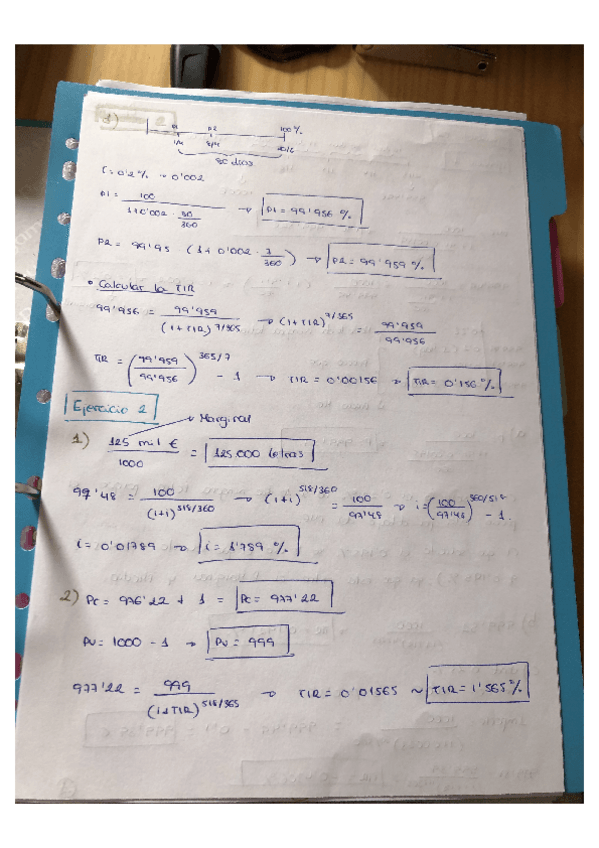 3)
P1 P2 100%
1/4 8/4 20/6
80 días
i = 0'2% → 0'002
P1 = 100 / (1+0'002 · 80/360) → P1 = 99'956 %
P2 = 99'95 (1 + 0'002 · 7/360) → P2 = 99'959 %
• Calcular la TIR
99'956 = 99'959 / (1+TIR)^7/365 → (1+TIR)^7/365 = 99'959 / 99'956
TIR = (99'959 / 99'956)^365/7 - 1 → TIR = 0'00156 ≈ TIR = 0'156 %
Ejercicio 2
→ Marginal
1) 125 mil € / 1000 = 125.000 letras
97'48 = 100 / (1+i)^518/360 → (1+i)^518/360 = 100 / 97'48 → i = (100 / 97'48)^360/518 - 1
i = 0'01789 → i = 1'789 %
2) Pc = 976'22 + 1 = Pc = 977'22
Pv = 1000 - 1 → Pv = 999
977'22 = 999 / (1+TIR)^518/365 → TIR = 0'01565 ~ TIR = 1'565%